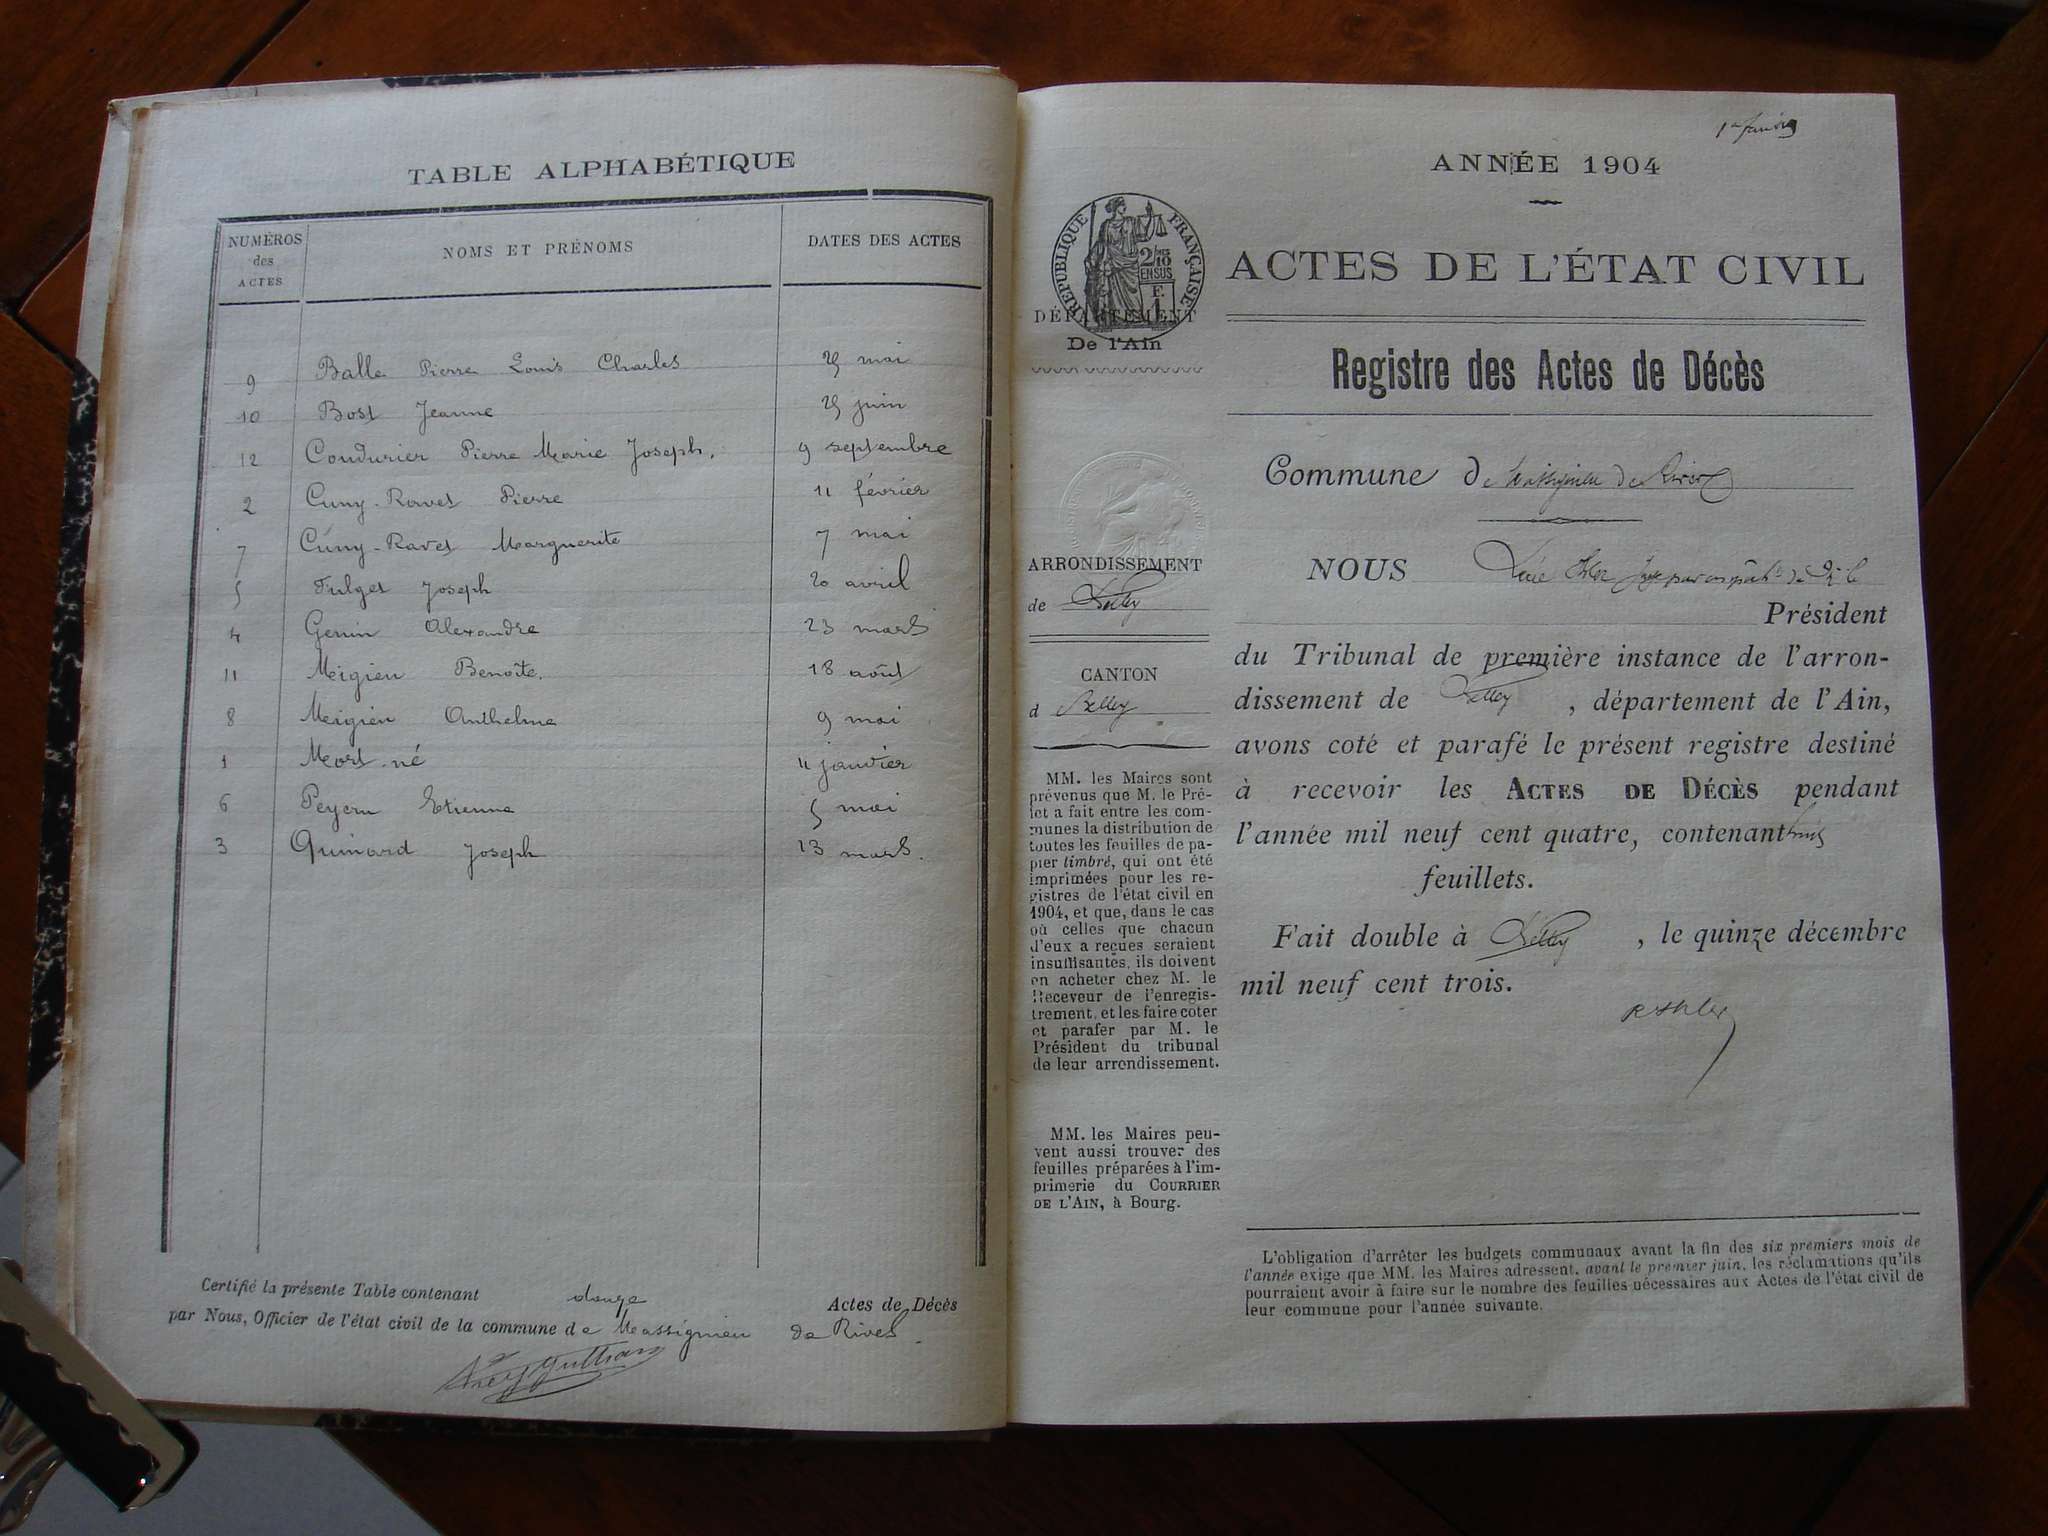 TABLE ALPHABÉTIQUE
NUMÉROS des ACTES
NOMS ET PRÉNOMS
DATES DES ACTES
9 Balle Pierre Louis Charles 25 mai
10 Bost Jeanne 25 juin
12 Coudurier Pierre Marie Joseph. 9 septembre
2 Cuny-Ravet Pierre 11 février
7 Cuny-Ravet Marguerite 7 mai
5 Fulget Joseph 20 avril
4 Genin Alexandre 23 mars
11 Meigien Benoîte. 18 août
8 Meigien Anthelme 9 mai
1 Mort-né 4 janvier
6 Peyern Etienne 5 mai
3 Quinard Joseph 13 mars.
Certifié la présente Table contenant douze Actes de Décès
par Nous, Officier de l'état civil de la commune de Massignieu de Rives.
ANNÉE 1904
RÉPUBLIQUE FRANÇAISE
2/10 EN SUS
F. 1
ACTES DE L'ÉTAT CIVIL
DÉPARTEMENT
De l'Ain
Registre des Actes de Décès
Commune de Massignieu de Rives
ARRONDISSEMENT
de Belley
CANTON
d Belley
MM. les Maires sont
prévenus que M. le Pré-
fet a fait entre les com-
munes la distribution de
toutes les feuilles de pa-
pier timbré, qui ont été
imprimées pour les re-
gistres de l'état civil en
1904, et que, dans le cas
où celles que chacun
d'eux a reçues seraient
insuffisantes, ils doivent
en acheter chez M. le
Receveur de l'enregis-
trement, et les faire coter
et parafer par M. le
Président du tribunal
de leur arrondissement.
MM. les Maires peu-
vent aussi trouver des
feuilles préparées à l'im-
primerie du COURRIER
DE L'AIN, à Bourg.
NOUS
Président
du Tribunal de première instance de l'arron-
dissement de Belley, département de l'Ain,
avons coté et parafé le présent registre destiné
à recevoir les ACTES DE DÉCÈS pendant
l'année mil neuf cent quatre, contenant
feuillets.
Fait double à Belley, le quinze décembre
mil neuf cent trois.
L'obligation d'arrêter les budgets communaux avant la fin des six premiers mois de
l'année exige que MM. les Maires adressent, avant le premier juin, les réclamations qu'ils
pourraient avoir à faire sur le nombre des feuilles nécessaires aux Actes de l'état civil de
leur commune pour l'année suivante.